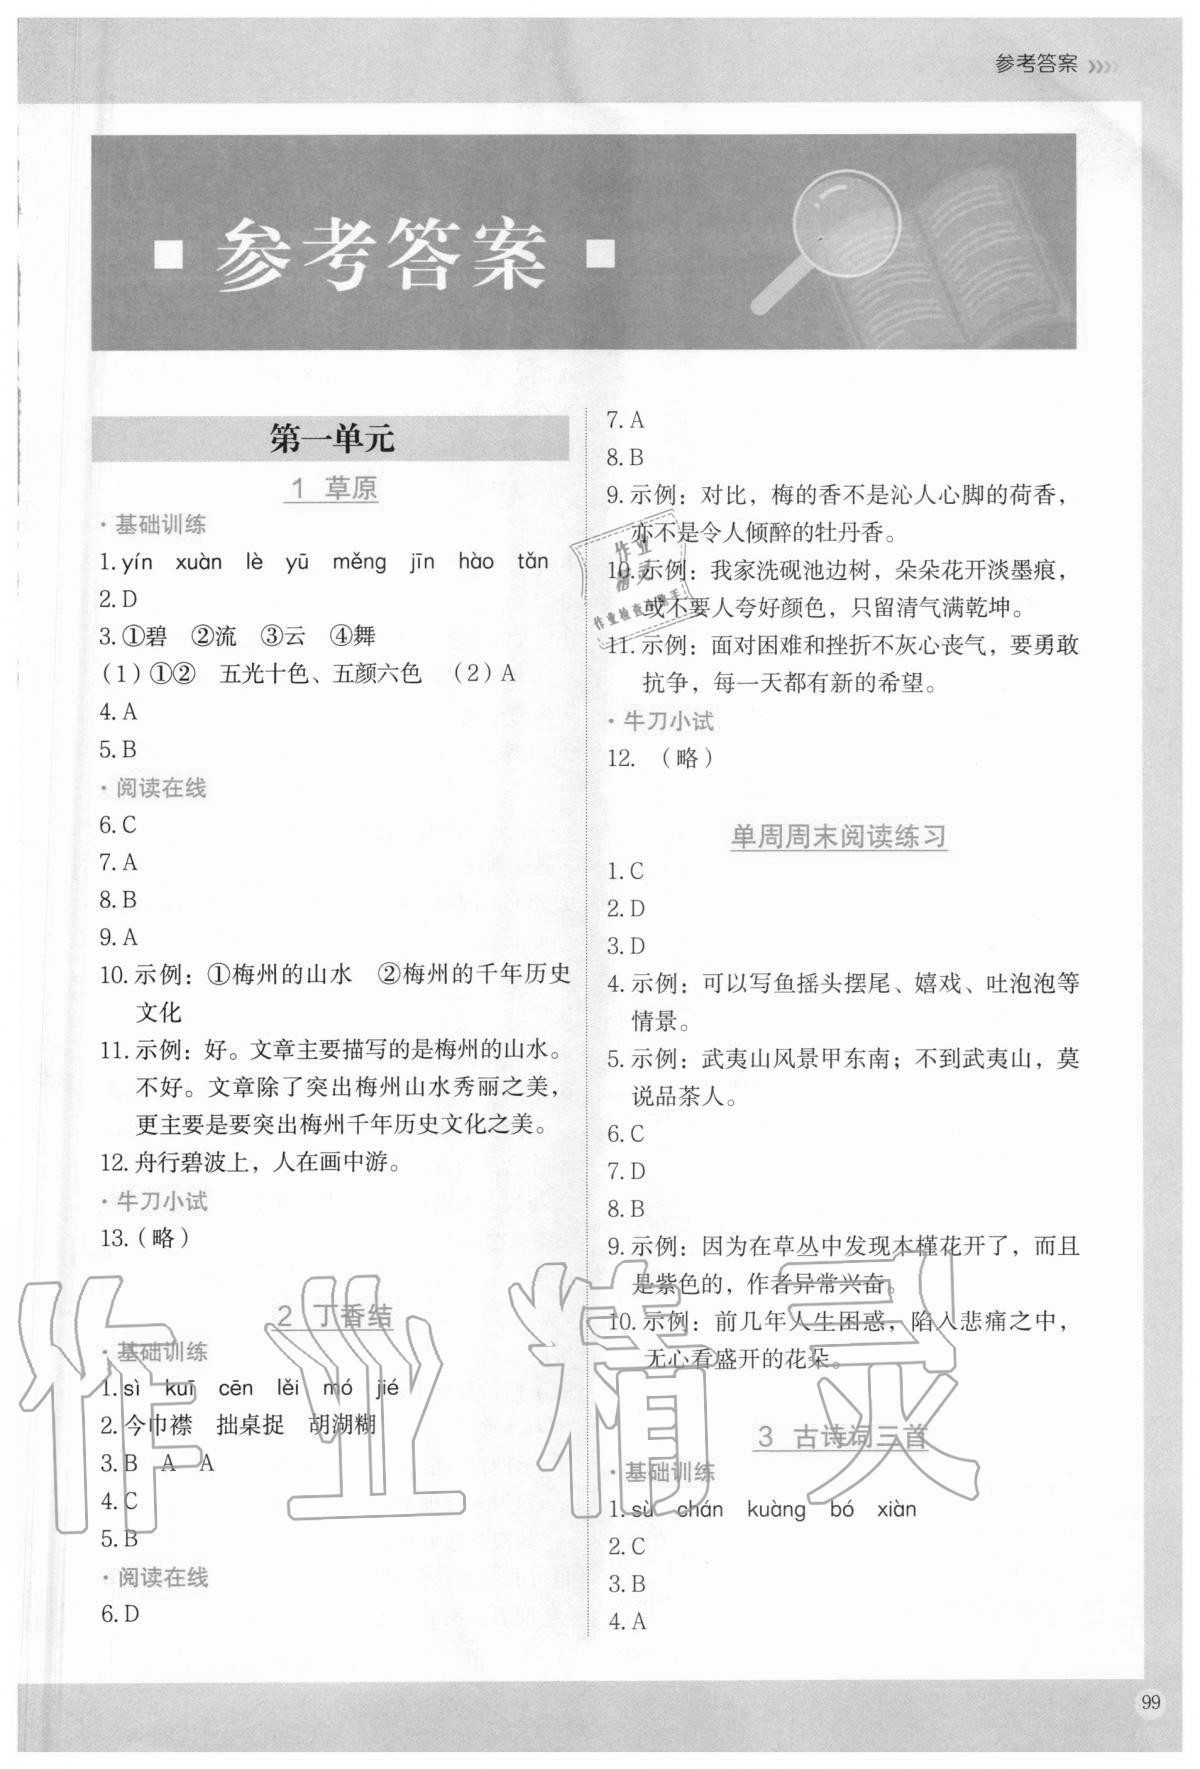 参考答案
参考答案
第一单元
1 草原
·基础训练
1. yín xuàn lè yū měng jīn hào tǎn
2. D
3. ①碧 ②流 ③云 ④舞
(1)①② 五光十色、五颜六色 (2)A
4. A
5. B
·阅读在线
6. C
7. A
8. B
9. A
10. 示例：①梅州的山水 ②梅州的千年历史
文化
11. 示例：好。文章主要描写的是梅州的山水。
不好。文章除了突出梅州山水秀丽之美，
更主要是要突出梅州千年历史文化之美。
12. 舟行碧波上，人在画中游。
·牛刀小试
13.（略）
2 丁香结
·基础训练
1. sì kuī cēn lěi mó jié
2. 今巾襟 拙桌捉 胡湖糊
3. B A A
4. C
5. B
·阅读在线
6. D
7. A
8. B
9. 示例：对比，梅的香不是沁人心脾的荷香，
亦不是令人倾醉的牡丹香。
10. 示例：我家洗砚池边树，朵朵花开淡墨痕，
或不要人夸好颜色，只留清气满乾坤。
11. 示例：面对困难和挫折不灰心丧气，要勇敢
抗争，每一天都有新的希望。
·牛刀小试
12. （略）
单周周末阅读练习
1. C
2. D
3. D
4. 示例：可以写鱼摇头摆尾、嬉戏、吐泡泡等
情景。
5. 示例：武夷山风景甲东南；不到武夷山，莫
说品茶人。
6. C
7. D
8. B
9. 示例：因为在草丛中发现木槿花开了，而且
是紫色的，作者异常兴奋。
10. 示例：前几年人生困惑，陷入悲痛之中，
无心看盛开的花朵。
3 古诗词三首
·基础训练
1. sù chán kuàng bó xiàn
2. C
3. B
4. A
99
作业精灵
作业
精灵